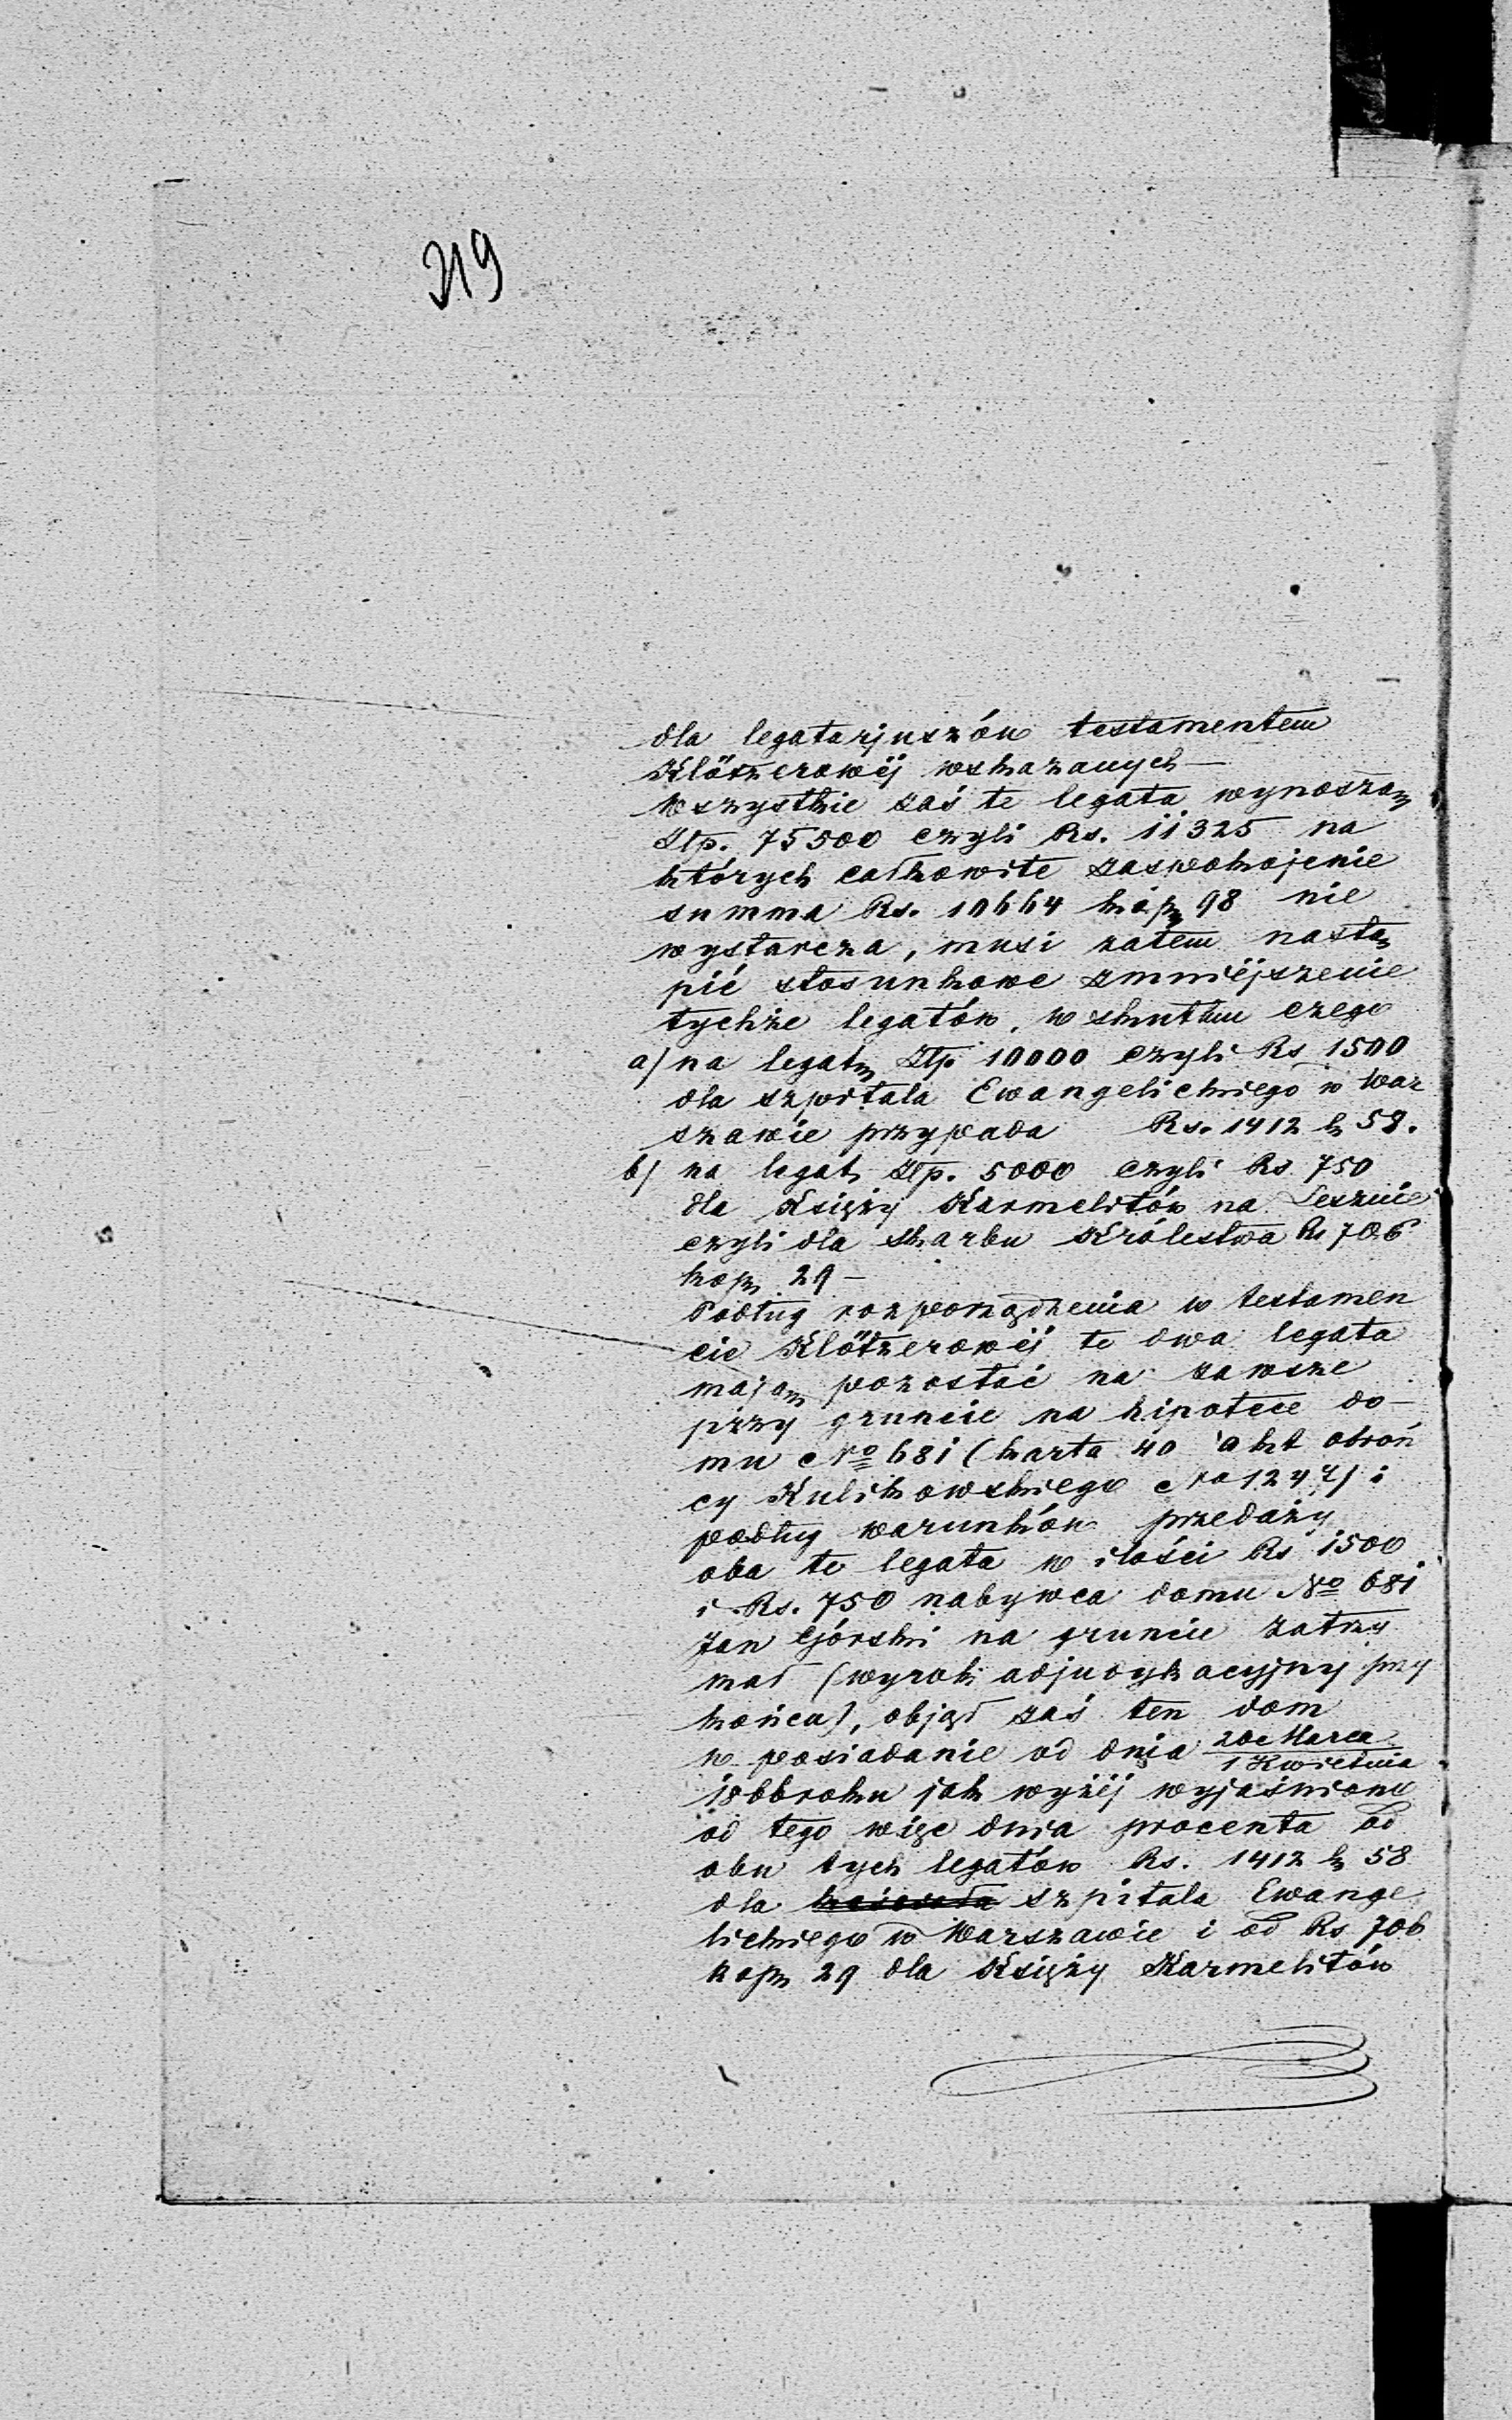 319
dla legatarjuszów testamentem
Klötzerowéj wskazanych —
Wszystkie zaś te legata wynoszą
Złp. 75500 czyli Rs. 11325 na
których całkowite zaspokojenie
summa Rs. 10664 kóp 98 nie
wystarcza, musi zatem nastą
pić stosunkowe zmniéjszenie
tychże legatów, w skutku czego
a) na legat Złp 10000 czyli Rs 1500
dla szpitala Ewangelickiego w War
szawie przypada Rs. 1412 k 58.
b) na legat Złp. 5000 czyli Rs 750
dla Księży Karmelitów na Lesznie
czyli dla Skarbu Królestwa Rs 706
kop 29 —
Podług rozporządzenia w testamen
cie Klötzerowéj te dwa legata
mają pozostać na zawsze
przy gruncie na hipotece do-
mu No 681 (karta 40 akt obroń
cy Kulikowskiego No 1247) i
podług warunków przedaży
oba te legata w ilości Rs 1500
i Rs. 750 nabywca domu No 681
Jan Górski na gruncie zatrzy
mał (wyrok adjudykacyjny przy
końcu), objął zaś ten dom
w posiadanie od dnia 20 Marca / 1 Kwietnia
1866 roku jak wyżéj wyjaśniono
od tego więc dnia procenta od
obu tych legatów Rs. 1412 k 58
dla szpitala Ewange
lickiego w Warszawie i od Rs 706
kop 29 dla Księży Karmelitów